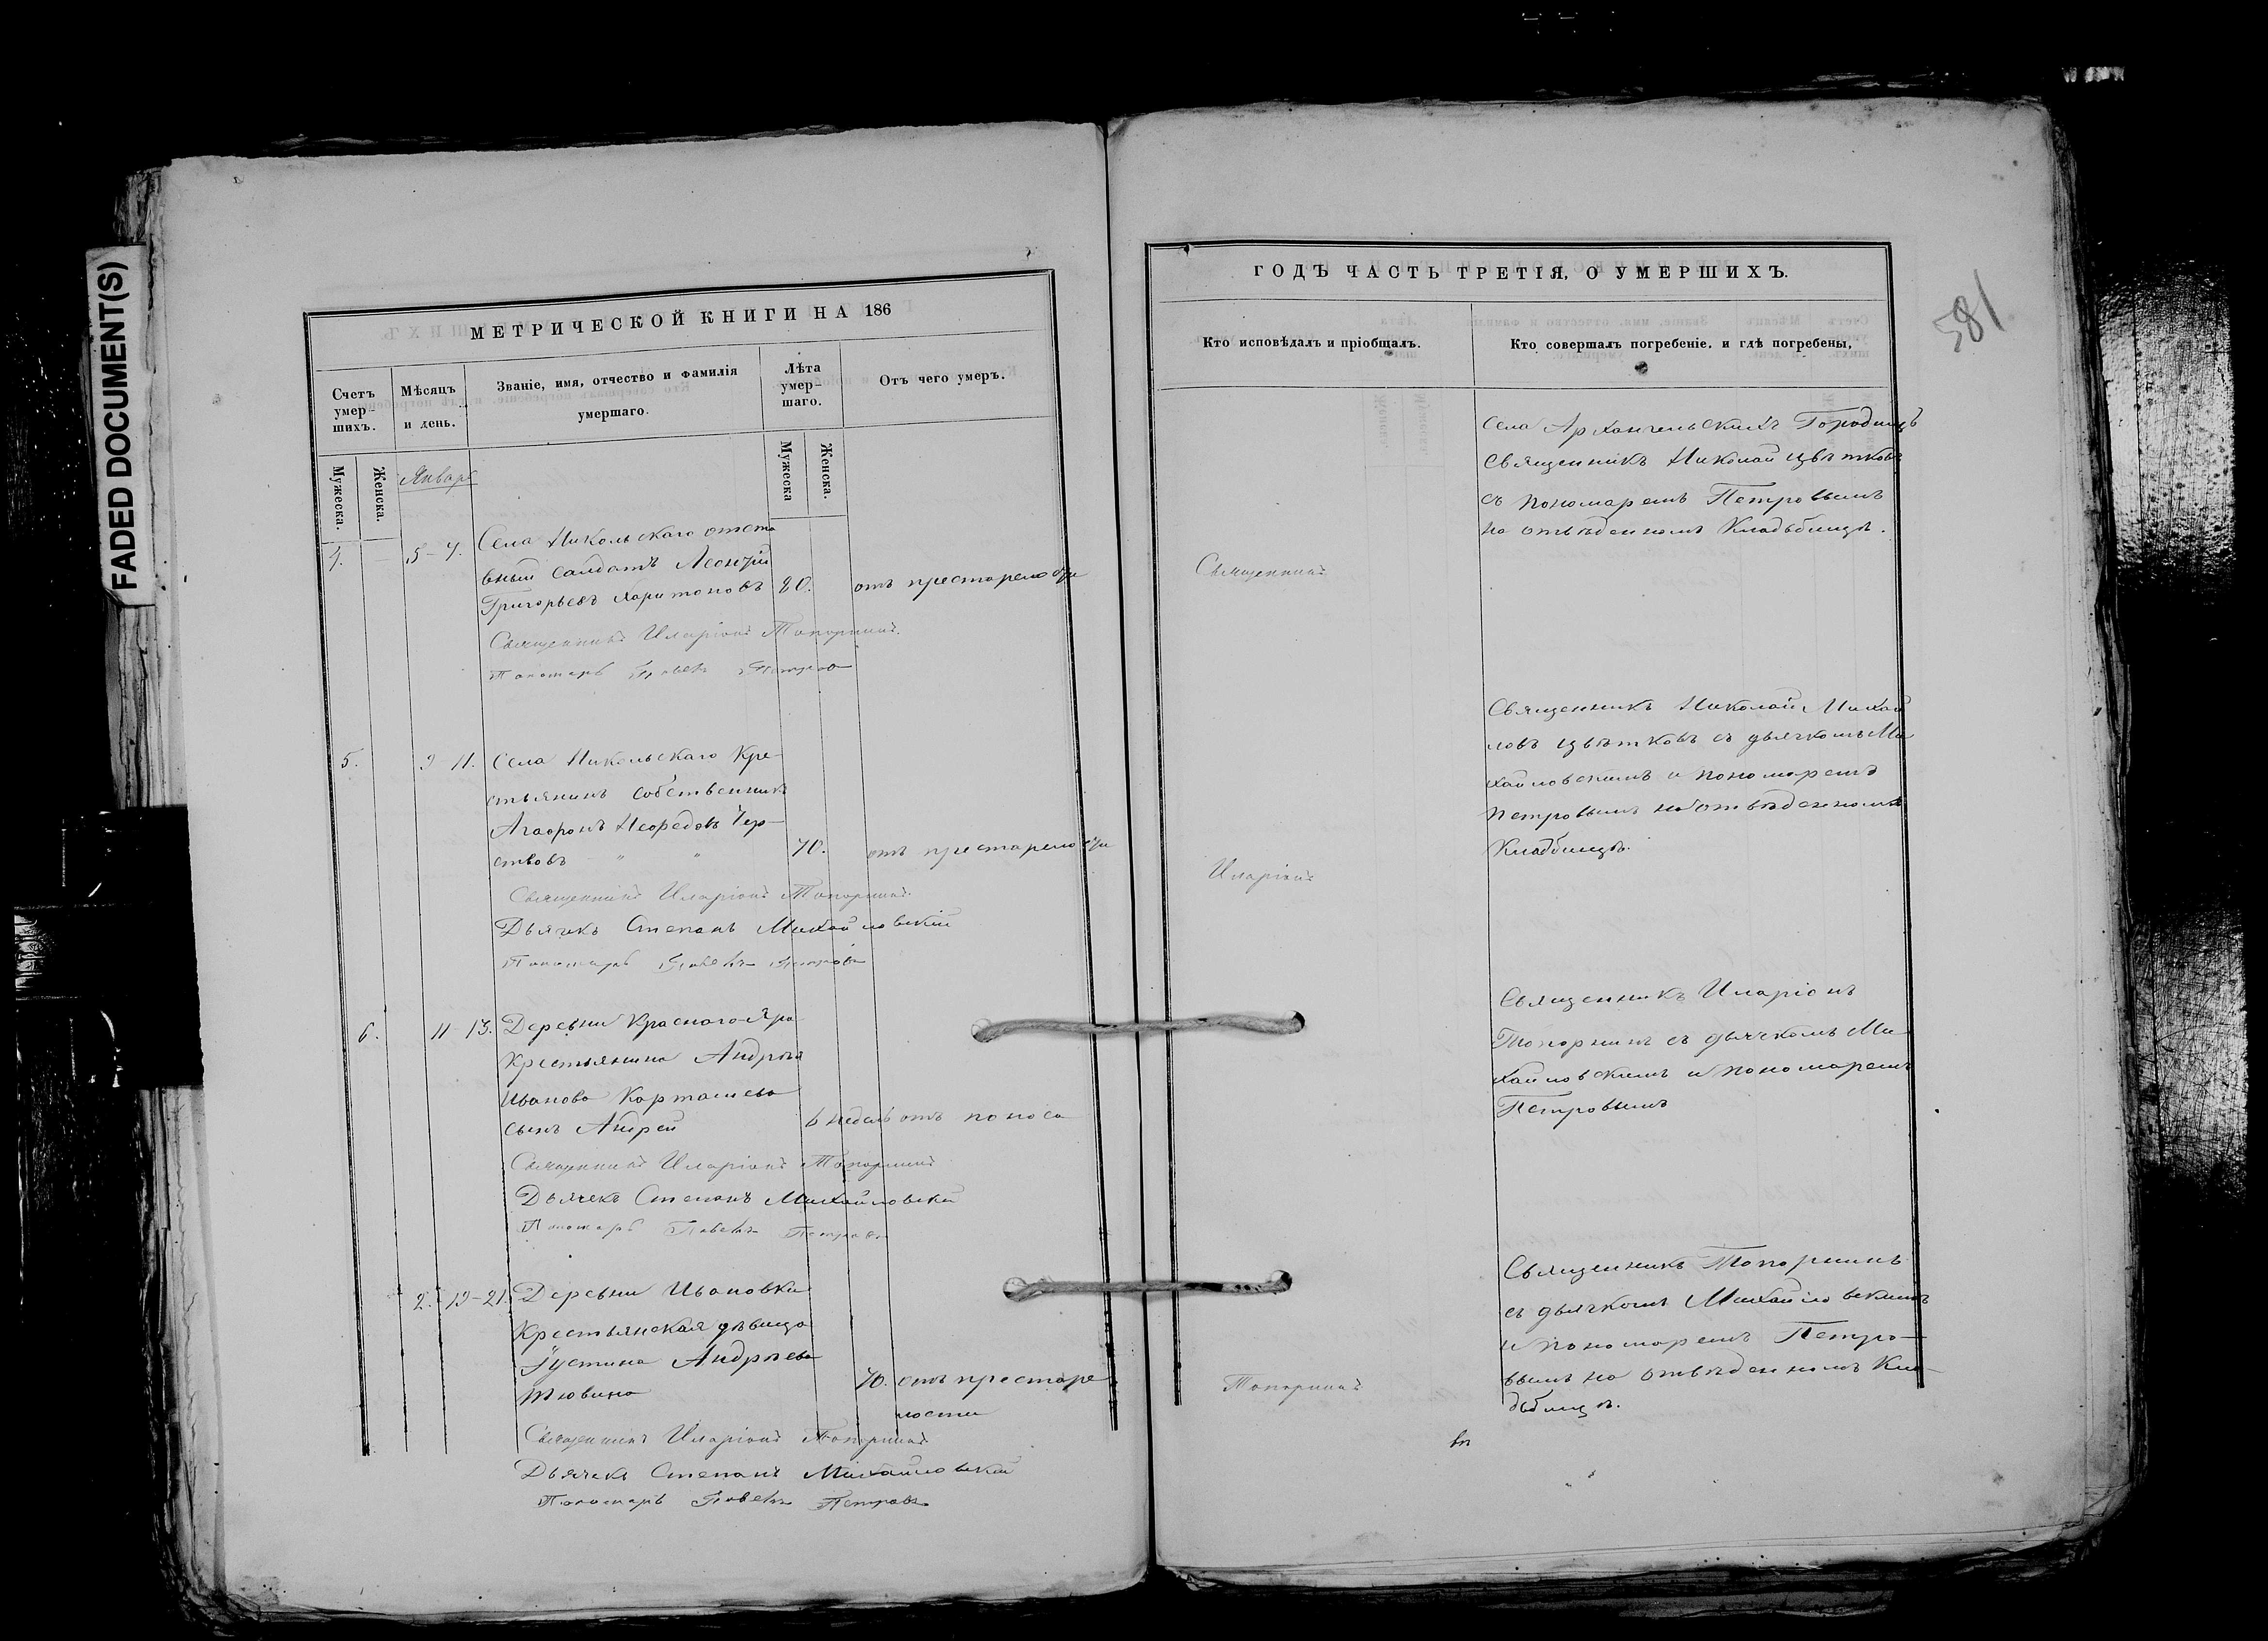 FADED DOCUMENT(S)
МЕТРИЧЕСКОЙ КНИГИ НА 186
Счетъ умер-шихъ.
Мѣсяцъ и день.
Званіе, имя, отчество и фамилія умершаго.
Лѣта умер-шаго.
Отъ чего умеръ.
Мужеска.
Женска.
Январь
Мужеска
Женска.
4. 5-7. Села Никольскаго отста
вный салдатъ Леонтій
Григорьевъ Харитоновъ 80. отъ престарелости
Священникъ Иларіонъ Топорнинъ.
Пономарь Павелъ Петровъ
5. 9 11. Села Никольскаго Кре-
стьянинъ собственникъ
Агафонъ
ствовъ " " 70. отъ престарелости
Священникъ Иларіонъ Топорнинъ.
Дьячекъ Степанъ Михайловскій
Пономарь Павелъ Петровъ
6. 11-13. Деревни Краснаго Яра
Крестьянина Андрея
Иванова Карташева
сынъ Андрей 6 недель отъ поноса
Священникъ Иларіонъ Топорнинъ
Дьячекъ Степанъ Михайловскій
Пономарь Павелъ Петровъ
2. 19-21. Деревни Ивановки
Крестьянская дѣвица
Іустина Андреева
70. отъ престаре
лости
Священникъ Иларіонъ Топорнинъ
Дьячекъ Степанъ Михайловскій
Пономарь Павелъ Петровъ
ГОДЪ ЧАСТЬ ТРЕТІЯ, О УМЕРШИХЪ.
581
Кто исповѣдалъ и пріобщалъ.
Кто совершалъ погребеніе, и гдѣ погребены,
Села Архангельскихъ Городищъ
Священникъ Николай Цвѣтковъ
съ пономаремъ Петровымъ
на отвѣденномъ Кладьбищѣ.
Священникъ
Священникъ Николай Михай
ловъ Цвѣтковъ съ дьячкомъ Ми
хайловскимъ и пономаремъ
Петровымъ на отвѣденномъ
Кладбищѣ.
Иларіонъ
Священникъ Иларіонъ
Топорнинъ съ дьячкомъ Ми
хайловскимъ и пономаремъ
Петровымъ
Священникъ Топорнинъ
съ дьячкомъ Михайловскимъ
и пономаремъ Петро-
вымъ на отвѣденномъ Кла-
дбищѣ.
Топорнинъ